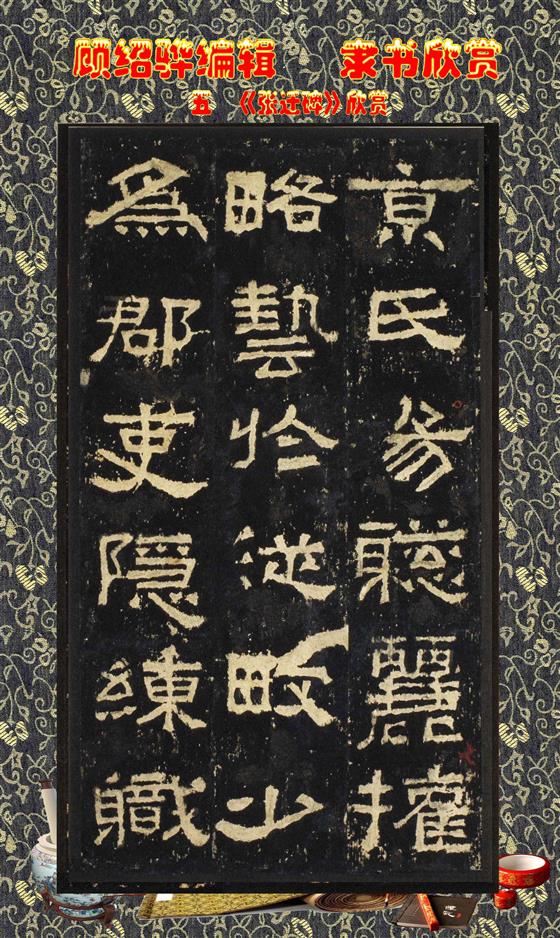 顾绍骅编辑 隶书欣赏
五 《张迁碑》欣赏
京氏易聪麗權
略藝於從畋少
為郡吏隱練職